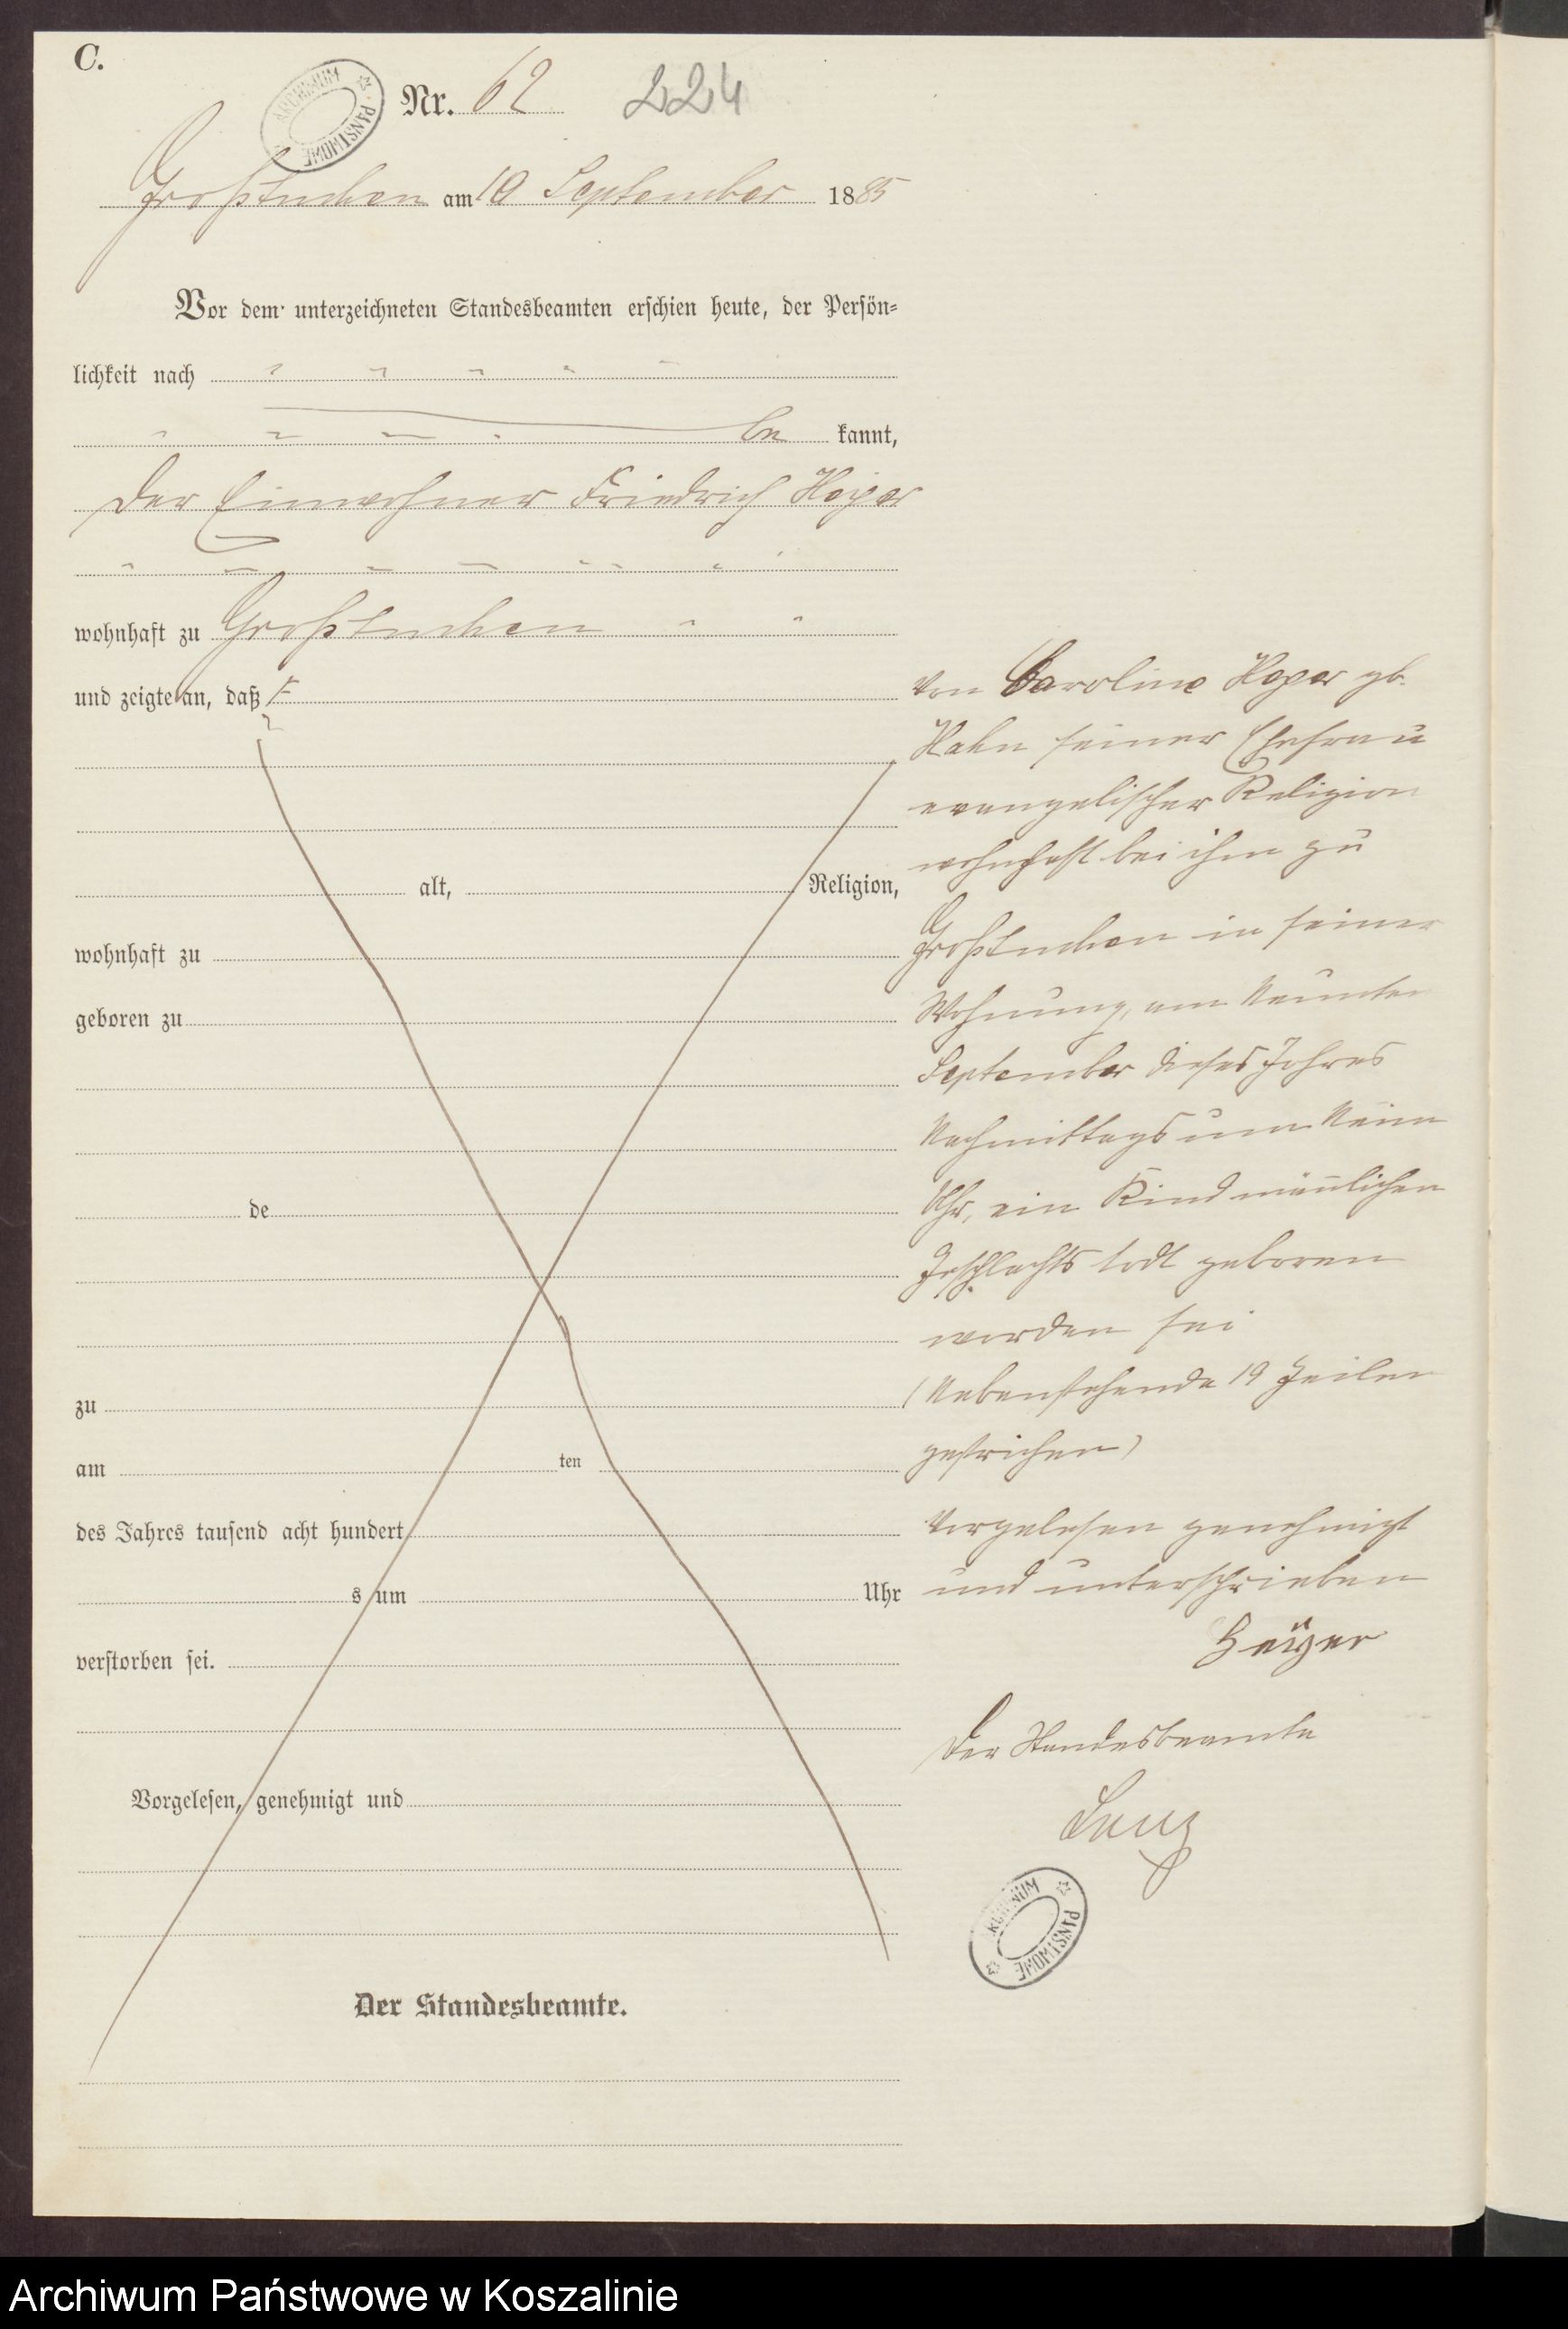 C.
ARCHIWUM PAŃSTWOWE
Nr. 62 224
Großtuchen am 10 September 1885
Vor dem unterzeichneten Standesbeamten erschien heute, der Persön-
lichkeit nach
be kannt,
der Einwohner Friedrich Heyer
wohnhaft zu Großtuchen
und zeigte an, daß
alt, Religion,
wohnhaft zu
geboren zu
de
zu
am ten
des Jahres tausend acht hundert
s um Uhr
verstorben sei.
Vorgelesen, genehmigt und
Der Standesbeamte.
von Caroline Heyer gb.
Hahn seiner Ehefrau
evangelischer Religion
wohnhaft bei ihm zu
Großtuchen in seiner
Wohnung, am Neunten
September dieses Jahres
Nachmittags um Neun
Uhr, ein Kind männlichen
Geschlechts todt geboren
worden sei
(Nebenstehende 19 Zeilen
gestrichen)
Vorgelesen genehmigt
und unterschrieben
Heÿer
Der Standesbeamte
ARCHIWUM PAŃSTWOWE
Archiwum Państwowe w Koszalinie